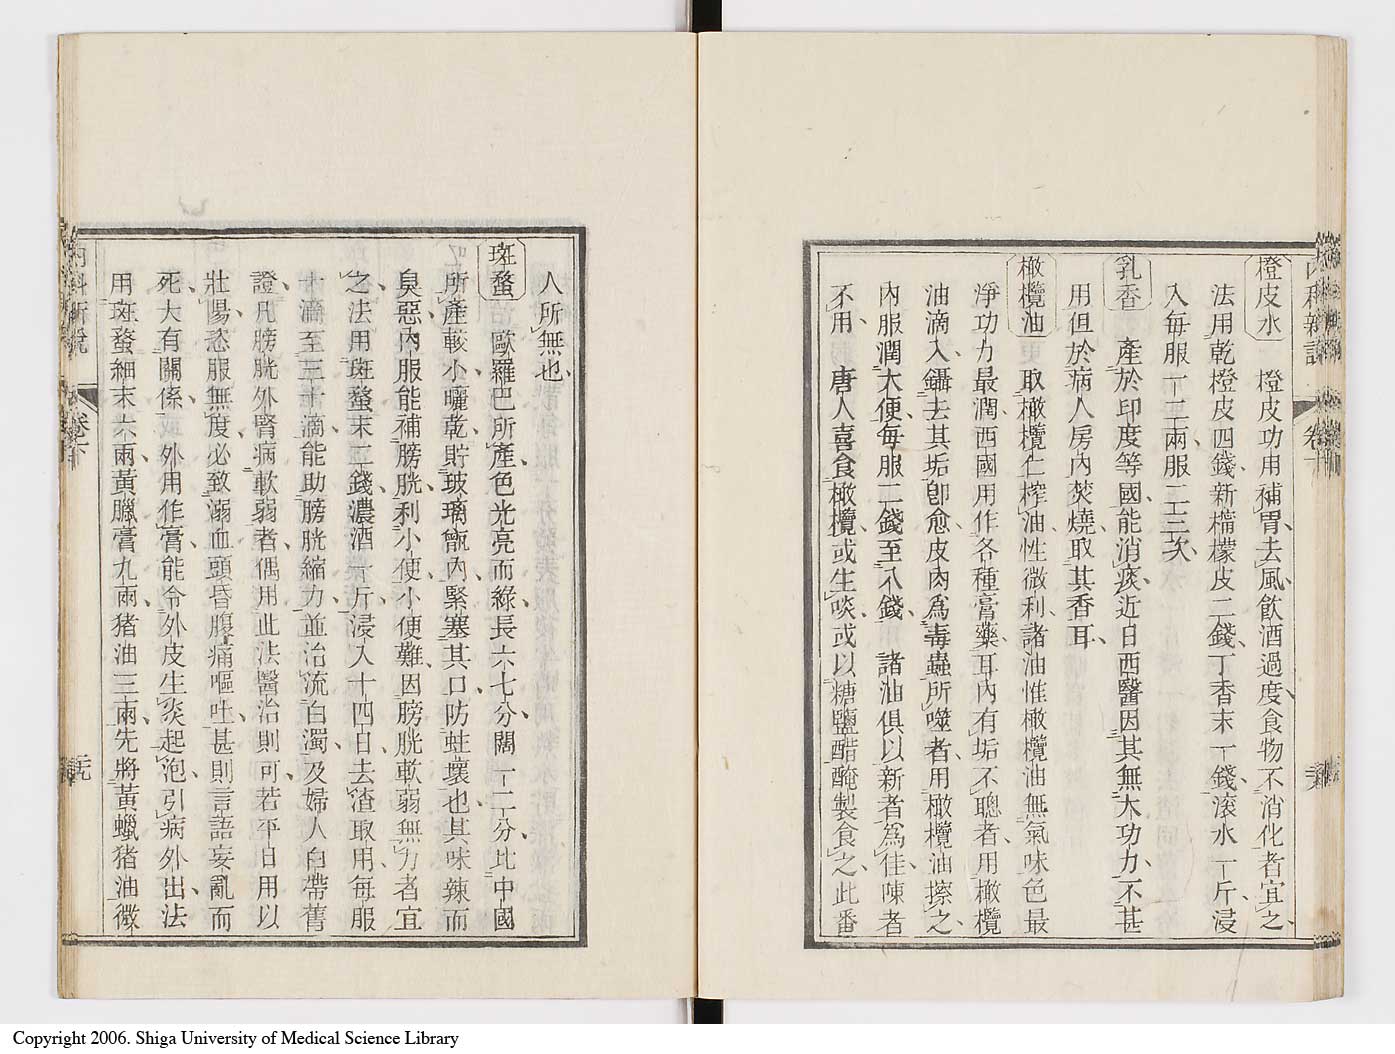 橙皮水 橙皮功用補胃去風飲酒過度食物不消化者宜之
法用乾橙皮四錢新檸檬皮二錢丁香末一錢滾水一斤浸
入每服一二兩服二三次
乳香 產於印度等國能消痰近日西醫因其無大功力不甚
用但於病人房內焚燒取其香耳
橄欖油 取橄欖仁榨油性微利諸油惟橄欖油無氣味色最
淨功力最潤西國用作各種膏藥耳內有垢不聰者用橄欖
油滴入鑷去其垢卽愈皮肉爲毒蟲所噬者用橄欖油擦之
內服潤大便每服二錢至八錢 諸油俱以新者爲佳陳者
不用 唐人喜食橄欖或生啖或以糖鹽醋醃製食之此番
人所無也
斑蝥 歐羅巴所產色光亮而綠長六七分闊一二分比中國
所產較小曬乾貯玻璃甁內緊塞其口防蛀壞也其味辣而
臭惡內服能補膀胱利小便小便難因膀胱軟弱無力者宜
之法用斑蝥末二錢濃酒一斤浸入十四日去渣取用每服
十滴至三十滴能助膀胱縮力並治流白濁及婦人白帶舊
證凡膀胱外腎病軟弱者偶用此法醫治則可若平日用以
壯陽恣服無度必致溺血頭昏腹痛嘔吐甚則言語妄亂而
死大有關係 外用作膏能令外皮生炎起泡引病外出法
用斑蝥細末六兩黃臘膏九兩猪油三兩先將黃蠟猪油微
內科新說 卷下